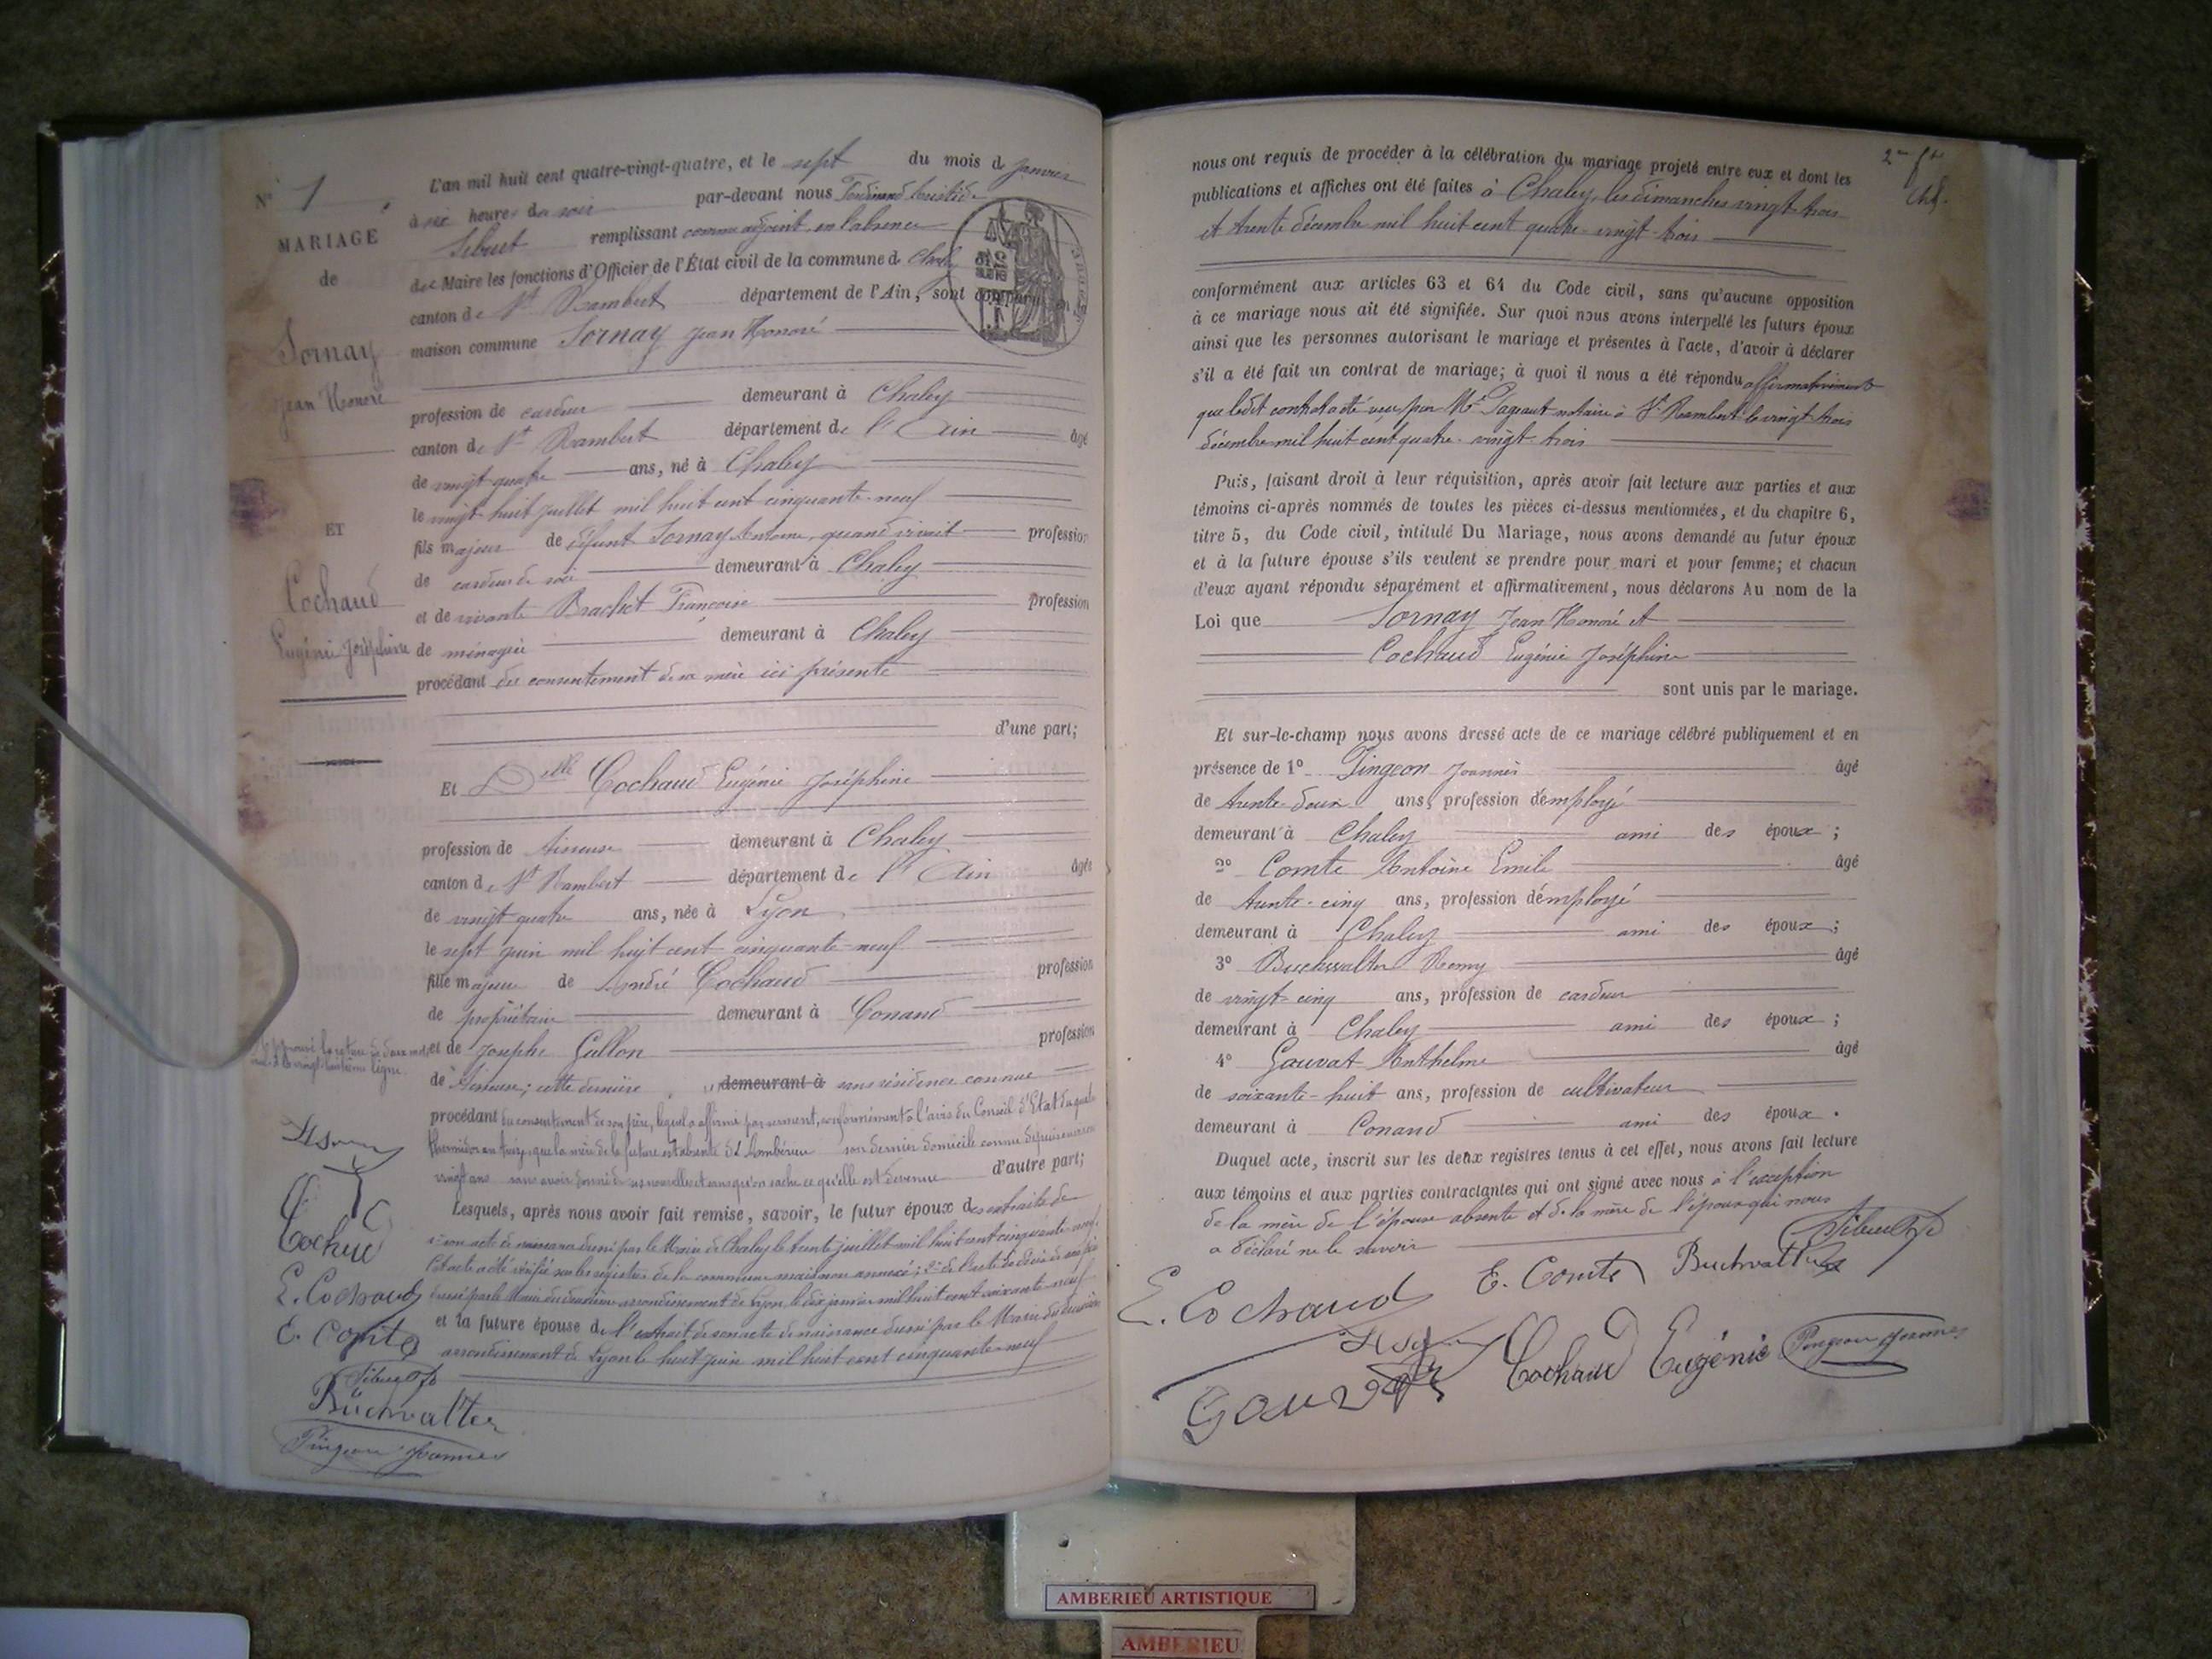 N° 1
MARIAGE
de
Sornay
Jean Honoré
ET
Cochaud
Eugénie Joséphine
L'an mil huit cent quatre-vingt-quatre, et le sept du mois de janvier
à six heures du soir par-devant nous Ferdinand
Sibuet remplissant comme adjoint, en l'absence
du Maire les fonctions d'Officier de l'État civil de la commune de Chaley
canton de St Rambert département de l'Ain, sont comparu en
maison commune Sornay Jean Honoré
profession de cardeur demeurant à Chaley
canton de St Rambert département de l'Ain âgé
de vingt quatre ans, né à Chaley
le vingt huit juillet mil huit cent cinquante-neuf
fils majeur de défunt Sornay Antoine, quand vivait profession
de cardeur de soie demeurant à Chaley
et de vivante Brachet Françoise profession
de ménagère demeurant à Chaley
procédant du consentement de sa mère ici présente
d'une part;
Et Delle Cochaud Eugénie Joséphine
profession de tisseuse demeurant à Chaley
canton de St Rambert département de l'Ain âgée
de vingt quatre ans, née à Lyon
le sept juin mil huit cent cinquante-neuf
fille majeure de André Cochaud profession
de propriétaire demeurant à Conand
et de Josephe Gullon profession
de tisseuse; cette dernière demeurant à sans résidence connue
procédant du consentement de son père, lequel a affirmé par serment, conformément à l'avis du Conseil d'Etat du quatre
thermidor an treize, que la mère de la future est absente de son dernier domicile connu depuis environ
vingt ans sans avoir donné de ses nouvelles et sans qu'on sache ce qu'elle est devenue d'autre part;
Lesquels, après nous avoir fait remise, savoir, le futur époux des extraits de
1° son acte de naissance dressé par le Maire de Chaley le trente juillet mil huit cent cinquante-neuf.
Cet acte a été vérifié sur les registres de la commune mais non annexé; 2° de l'acte de décès de son père
dressé par le Maire du deuxième arrondissement de Lyon, le dix janvier mil huit cent soixante-neuf
et la future épouse de l'extrait de son acte de naissance dressé par le Maire du deuxième
arrondissement de Lyon le huit juin mil huit cent cinquante-neuf
Cochaud
E. Cochaud
E. Comte
Sibuet
Buchvalter
Pingeon Joannès
2me ft
nous ont requis de procéder à la célébration du mariage projeté entre eux et dont les
publications et affiches ont été faites à Chaley, les dimanches vingt trois
et trente décembre mil huit cent quatre-vingt-trois
conformément aux articles 63 et 64 du Code civil, sans qu'aucune opposition
à ce mariage nous ait été signifiée. Sur quoi nous avons interpellé les futurs époux
ainsi que les personnes autorisant le mariage et présentes à l'acte, d'avoir à déclarer
s'il a été fait un contrat de mariage; à quoi il nous a été répondu affirmativement
que ledit contrat a été reçu par Me Pageaut notaire à St Rambert le vingt-trois
décembre mil huit cent quatre-vingt-trois
Puis, faisant droit à leur réquisition, après avoir fait lecture aux parties et aux
témoins ci-après nommés de toutes les pièces ci-dessus mentionnées, et du chapitre 6,
titre 5, du Code civil, intitulé Du Mariage, nous avons demandé au futur époux
et à la future épouse s'ils veulent se prendre pour mari et pour femme; et chacun
d'eux ayant répondu séparément et affirmativement, nous déclarons Au nom de la
Loi que Sornay Jean Honoré et
Cochaud Eugénie Joséphine
sont unis par le mariage.
Et sur-le-champ nous avons dressé acte de ce mariage célébré publiquement et en
présence de 1° Pingeon Joannès âgé
de trente-deux ans, profession d'employé
demeurant à Chaley ami des époux;
2° Comte Antoine Emile âgé
de trente-cinq ans, profession d'employé
demeurant à Chaley ami des époux;
3° Buchwalter Remy âgé
de vingt-cinq ans, profession de cardeur
demeurant à Chaley ami des époux;
4° Gauvat Anthelme âgé
de soixante-huit ans, profession de cultivateur
demeurant à Conand ami des époux.
Duquel acte, inscrit sur les deux registres tenus à cet effet, nous avons fait lecture
aux témoins et aux parties contractantes qui ont signé avec nous à l'exception
de la mère de l'épouse absente et de la mère de l'époux qui nous
a déclaré ne le savoir
Sibuet
E. Cochaud E. Comte Buchvalter
Gauvat Cochaud Eugénie Pingeon Joannès
AMBERIEU ARTISTIQUE
AMBERIEU